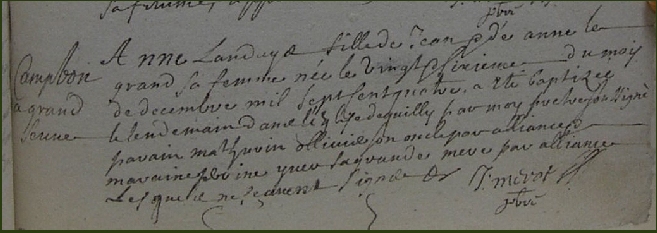 sa femme
ptre
Campbon
a grand
Jeune
Anne Landays fille de Jean & de anne le
grand sa femme née le vingt & sixieme du mois
de decembre mil sept cent quatre, a eté baptizee
le lendemain dans l'eglise de quilly par moy pretre soussigné
parain mathurin ollivier son oncle par alliance
maraine perine yver sa grande mere par alliance
Lesquels ne scavent signer
ptre